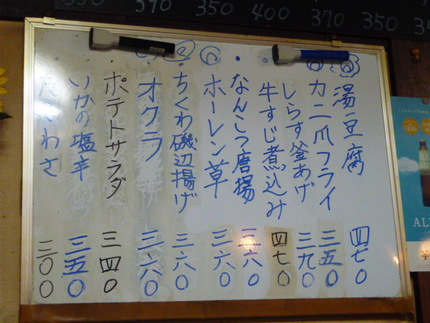 370 350 400 370 350
湯豆腐 四七〇
カニ爪フライ 三五〇
しらす釜あげ 三九〇
牛すじ煮込み 四七〇
なんこつ唐揚 三六〇
ホーレン草 三六〇
ちくわ磯辺揚げ 三六〇
オクラ 三六〇
ポテトサラダ 三四〇
いかの塩辛 三五〇
たこわさ 三〇〇